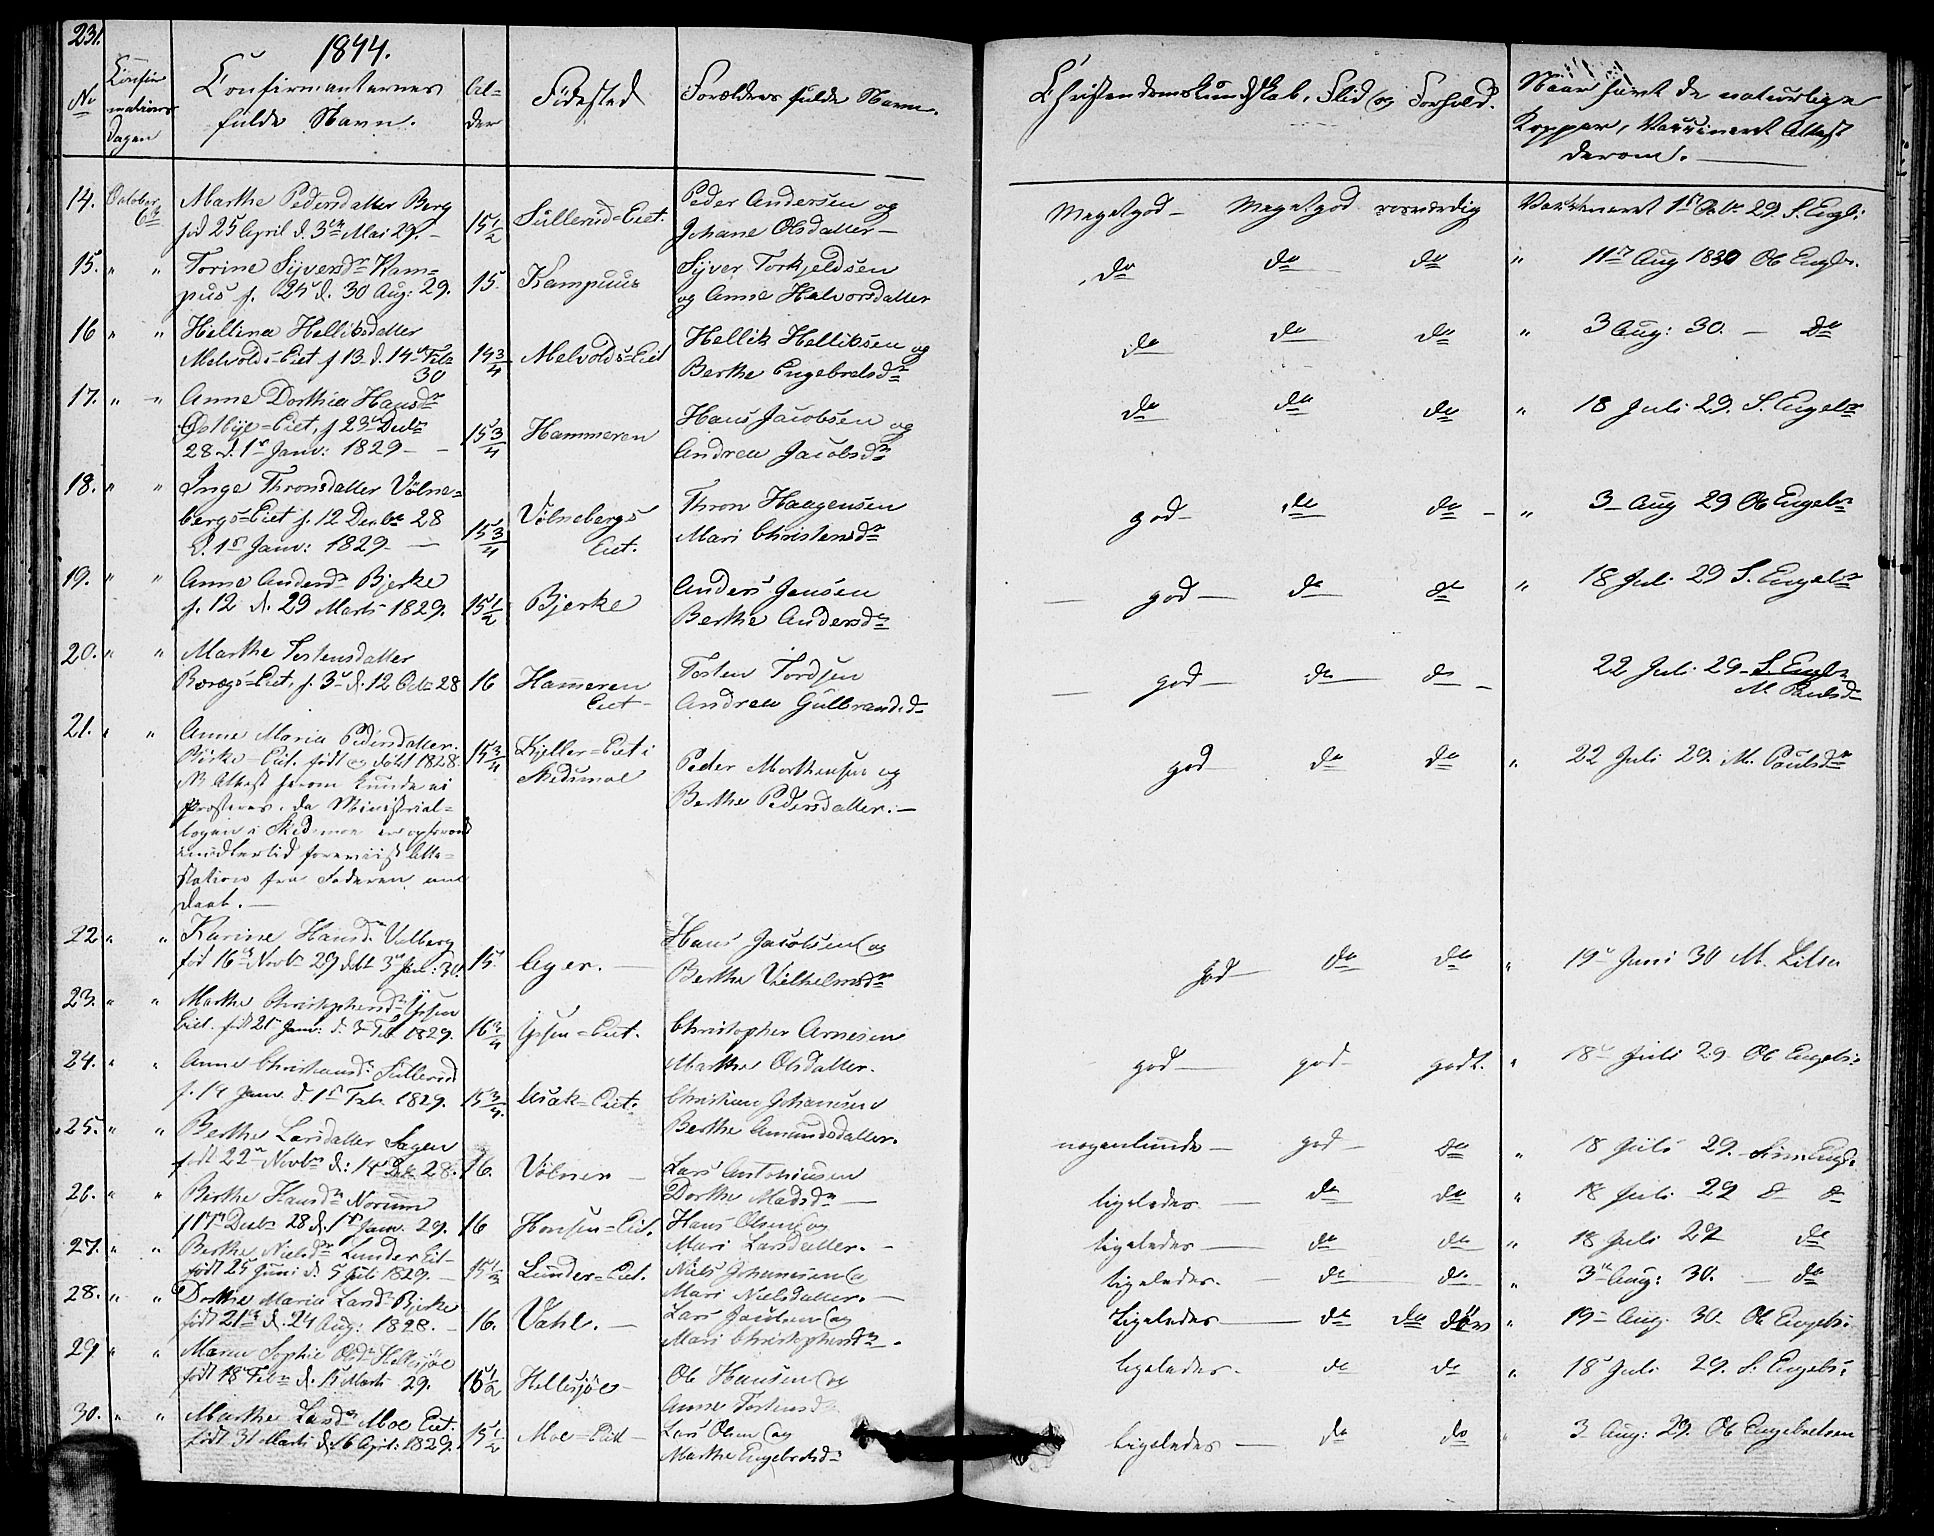 231.
1844.
No
Confirmations Dagen
Confirmanternes fulde Navn.
Alder
Födested
Forældres fulde Navn.
Christendomskundskab, Flid og Forhold.
Naar havt de naturlige Kopper, Vaccineret Attest derom.
14. October 6te
Marthe Pedersdatter Berg
fød 25 April d. 3die Mai 29.
15 1/2
Süllerud=Eiet.
Peder Andersen og
Johane Olsdatter
Megetgod Megetgod roesværdig
Vaccineret 1st Octbr 29. S. Engb:
15. " "
Torine Syversdr Kam=
pus f. 25 d. 30 Aug: 29.
15.
Kampuus
Syver Torkjeldsen
og Anne Halvorsdatter
do do do
" 11te Aug 1830 Ob Engbr.
16 " "
Hellina Helliksdatter
Melvolds=Eiet f 13 d. 14de Feb
30
14 3/4
Melvolds=Eiet
Hellik Helliksen og
Berthe Engebretsdr
do do do
" 3 Aug: 30. — do
17. " "
Anne Dorthea Hansdr
Østbye=Eiet, f 23de Decbr
28 d. 1st Janv: 1829
15 3/4
Hammeren
Hans Jacobsen og
Andrea Jacobsdr
do do do
" 18 Juli 29. S. Engebr
18. " "
Inge Thronsdatter Völne=
bergs=Eiet f. 12 Decbr 28
d. 1st Janv: 1829
15 3/4
Völnebergs
Eiet.
Thron Haagensen
Mari Christensdr
god do do
" 3 Aug 29 Ob Engebr
19. " "
Anne Andersdr Bjerke
f. 12 d. 29 Marts 1829.
15 1/2
Bjerke
Anders Jensen
Berthe Andersdr
god do do
" 18 Juli 29 S. Engebr
20. " "
Marthe Tostensdatter
Eiet, f. 3 d. 12 Octb 28
16
Hameren
Eiet
Tosten Tordsen
Andrea Gulbrandsdr
god do do
22 Juli 29 S. Engbr
M Paulsdr
21. " "
Anne Maria Pedersdatter.
Eiet. født og döbt 1828.
NB Attest herom kunde ei
præsteres, da Ministrial=
bogen i Skedsmoe er opbrændt
imidlertid foreviist Atte=
station fra Faderen om
Daab.
15 3/4
Kjeller=Eiet i
Skedsmoe
Peder Mortensen og
Berthe Pedersdatter.
god do do
" 22 Juli 29. M. Paulsdr
22 " "
Karine Hansdr Valberg
fød 16de Novbr 29 döbt 3die Jan: 30.
15.
Ager.
Hans Jacobsen og
Berthe Vilhelmsdr
god do do
" 19de Juni 30 M. Lilse
23. " "
Marthe Christophersdr Ipsen
Eiet. født 21 Janv: d. Feb 1829.
16 3/4
Ipsen=Eiet.
Christopher Arnesen
Marthe Olsdatter.
god god godt.
" 18de Juli 29. Ob Engebr:
24. " "
Anne Christiansdr Süllerud
f. 14 Janv d 1st Feb. 1829.
15 3/4.
Usak=Eiet.
Christian Johannesen
Berthe Amundsdatter.
nogenlunde god do
" 18 Juli 29. Sim: Engb.
25. " "
Berthe Larsdatter Sagen
født 22de Novbr d: 14 28.
16.
Völner
Lars Antoniusen
Dorthe Madsdr
ligeledes do do
" 18 Juli 29 do do
26. " "
Berthe Hansdr Norum
f 17de Decbr 28 d. 1st Janv. 29.
16
Honsen=Eiet.
Hans Olsen og
Mari Larsdatter.
ligeledes do do
" 18 Juli 29 do
27. " "
Berthe Nielsdr Lunder Eit
født 25 Juni d. 5 Juli 1829.
15 1/2
Lunder=Eiet.
Niels Johannesen og
Mari Nielsdatter.
ligeledes. do do.
" 3de Aug: 30. do
28. " "
Dorthe Maria Larsdr Bjerke
født 21de d. 24 Aug: 1828.
16.
Vahl.
Lars Jacobsen og
Mari Christophersdr.
Ligeledes do do döv
" 19 Aug. 30. Ob Engebr:
29 " "
Maren Sophie Olsdr Hellesjöe
født 18 Feb d. 15 Marts 29.
15 1/2
Hellesjöe
Ole Hansen og
Anne Tostensdr
ligeledes. do do
" 18de Juli 29. S. Engebr:
30. " "
Marthe Larsdr Moe Eiet.
født 31 Marts d. 16 April: 1829.
15 1/2
Moe=Eiet
Lars Olsen og
Marthe Engebretsdr
Ligeledes do do
" 3 Aug: 29. Ob Engebretsen